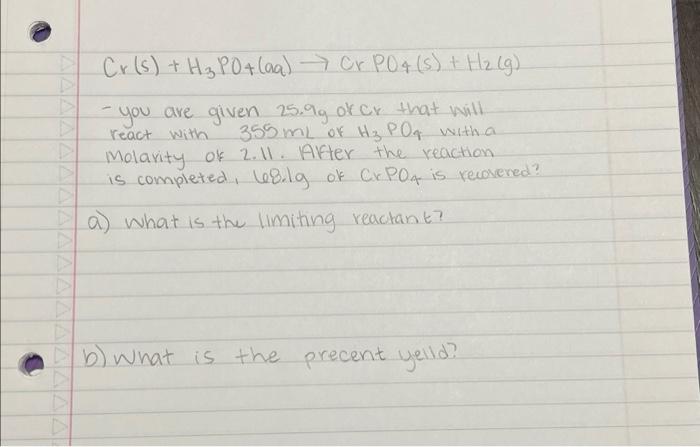 Cr(s) + H3PO4(aq) → CrPO4(s) + H2(g)
- you are given 25.9g of Cr that will
react with 355mL of H3PO4 with a
Molarity of 2.11. After the reaction
is completed, 68.1g of CrPO4 is recovered?
a) what is the limiting reactant?
b) What is the precent yeild?